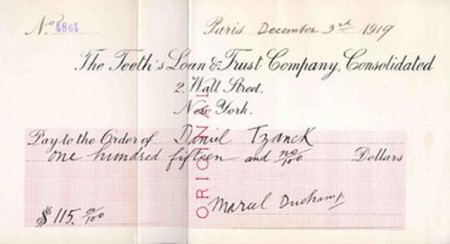 No. 4864
Paris December 3rd 1919
The Teeth's Loan & Trust Company, Consolidated
2. Wall Street.
New York.
Pay to the Order of Daniel Tzanck
one hundred fifteen and no/100 Dollars
ORIGINAL
$ 115. 00/100
Marcel Duchamp